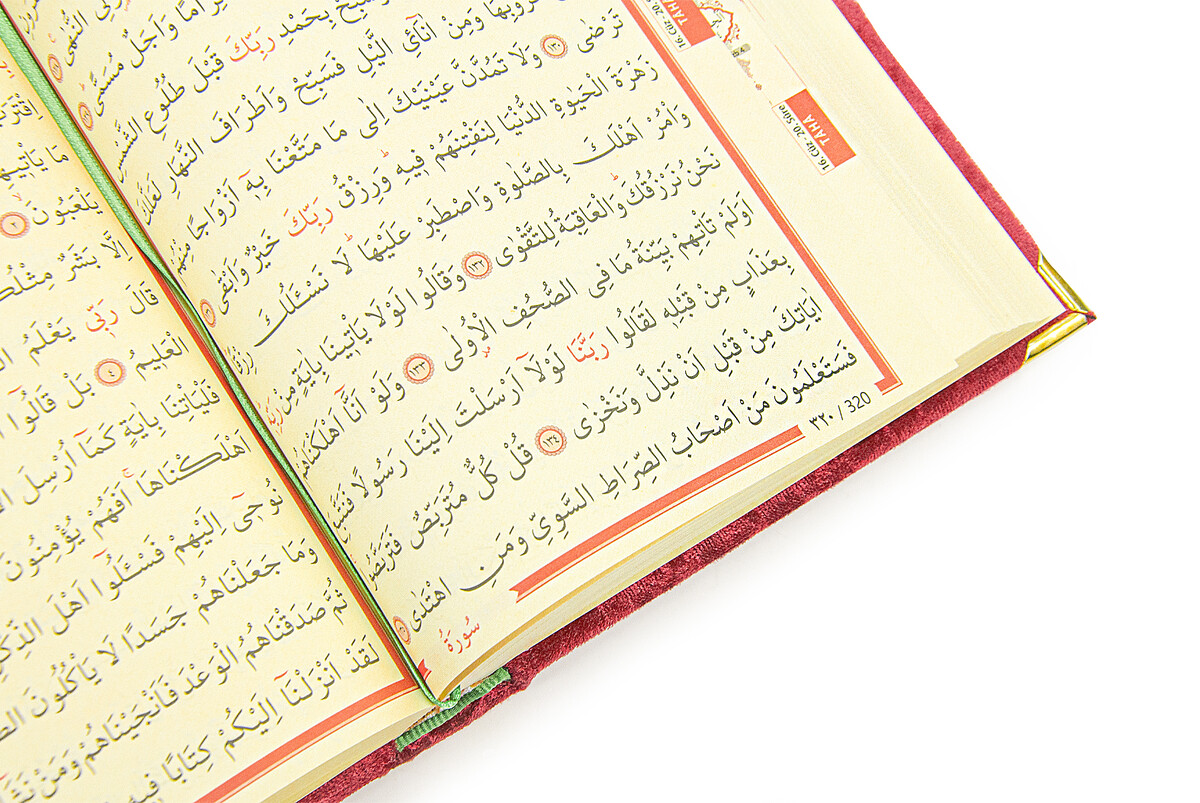 اُو۬لِى النُّهٰى
لِزَامًا وَاَجَلٌ مُسَمًّى
بِحَمْدِ رَبِّكَ قَبْلَ طُلُوعِ الشَّمْسِ
غُرُوبِهَا وَمِنْ اٰنَٓائِ الَّيْلِ فَسَبِّحْ وَاَطْرَافَ النَّهَارِ لَعَلَّكَ
تَرْضٰى ١٣٠ وَلَا تَمُدَّنَّ عَيْنَيْكَ اِلٰى مَا مَتَّعْنَا بِه۪ٓ اَزْوَاجًا مِنْهُمْ
زَهْرَةَ الْحَيٰوةِ الدُّنْيَا لِنَفْتِنَهُمْ ف۪يهِ وَرِزْقُ رَبِّكَ خَيْرٌ وَاَبْقٰى ١٣١
وَأْمُرْ اَهْلَكَ بِالصَّلٰوةِ وَاصْطَبِرْ عَلَيْهَا لَا نَسْـَٔلُكَ رِزْقًا
نَحْنُ نَرْزُقُكَ وَالْعَاقِبَةُ لِلتَّقْوٰى ١٣٢ وَقَالُوا لَوْلَا يَأْت۪ينَا بِاٰيَةٍ مِنْ رَبِّه۪
اَوَلَمْ تَأْتِهِمْ بَيِّنَةُ مَا فِى الصُّحُفِ الْاُو۫لٰى ١٣٣ وَلَوْ اَنَّٓا اَهْلَكْنَاهُمْ
بِعَذَابٍ مِنْ قَبْلِه۪ لَقَالُوا رَبَّنَا لَوْلَٓا اَرْسَلْتَ اِلَيْنَا رَسُولًا فَنَتَّبِعَ
اٰيَاتِكَ مِنْ قَبْلِ اَنْ نَذِلَّ وَنَخْزٰى ١٣٤ قُلْ كُلٌّ مُتَرَبِّصٌ فَتَرَبَّصُوا
فَسَتَعْلَمُونَ مَنْ اَصْحَابُ الصِّرَاطِ السَّوِىِّ وَمَنِ اهْتَدٰى
٣٢٠ / 320
سُورَةُ
TÂHÂ
16. Cüz - 20.
TÂHÂ
16. Cüz - 20. Sûre
اِقْتَرَبَ
مَا يَأْت۪يهِمْ
يَلْعَبُونَ ٢
اِلَّا بَشَرٌ مِثْلُكُمْ
قَالَ رَبّ۪ى يَعْلَمُ
الْعَل۪يمُ ٤ بَلْ قَالُٓوا
فَلْيَأْتِنَا بِاٰيَةٍ كَمَٓا اُرْسِلَ
اَهْلَكْنَاهَا اَفَهُمْ يُؤْمِنُونَ
نُوح۪ٓى اِلَيْهِمْ فَسْـَٔلُٓوا اَهْلَ الذِّكْرِ
وَمَا جَعَلْنَاهُمْ جَسَدًا لَا يَأْكُلُونَ
ثُمَّ صَدَقْنَاهُمُ الْوَعْدَ فَاَنْجَيْنَاهُمْ وَمَنْ
لَقَدْ اَنْزَلْنَٓا اِلَيْكُمْ كِتَابًا ف۪يهِ